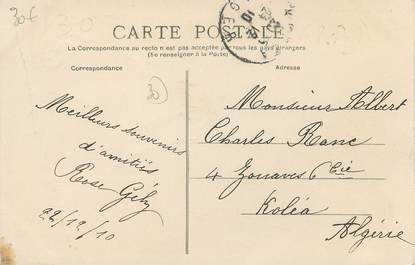 30€
CARTE POSTALE
La Correspondance au recto n'est pas acceptée par tous les pays étrangers
(Se renseigner à la Poste)
Correspondance
Adresse
30
Meilleurs souvenirs
d'amitiés
Rose Gély
22/12/10
Monsieur Albert
Charles Ranc
4 Zouaves 6 Cie
Koléa
Algérie